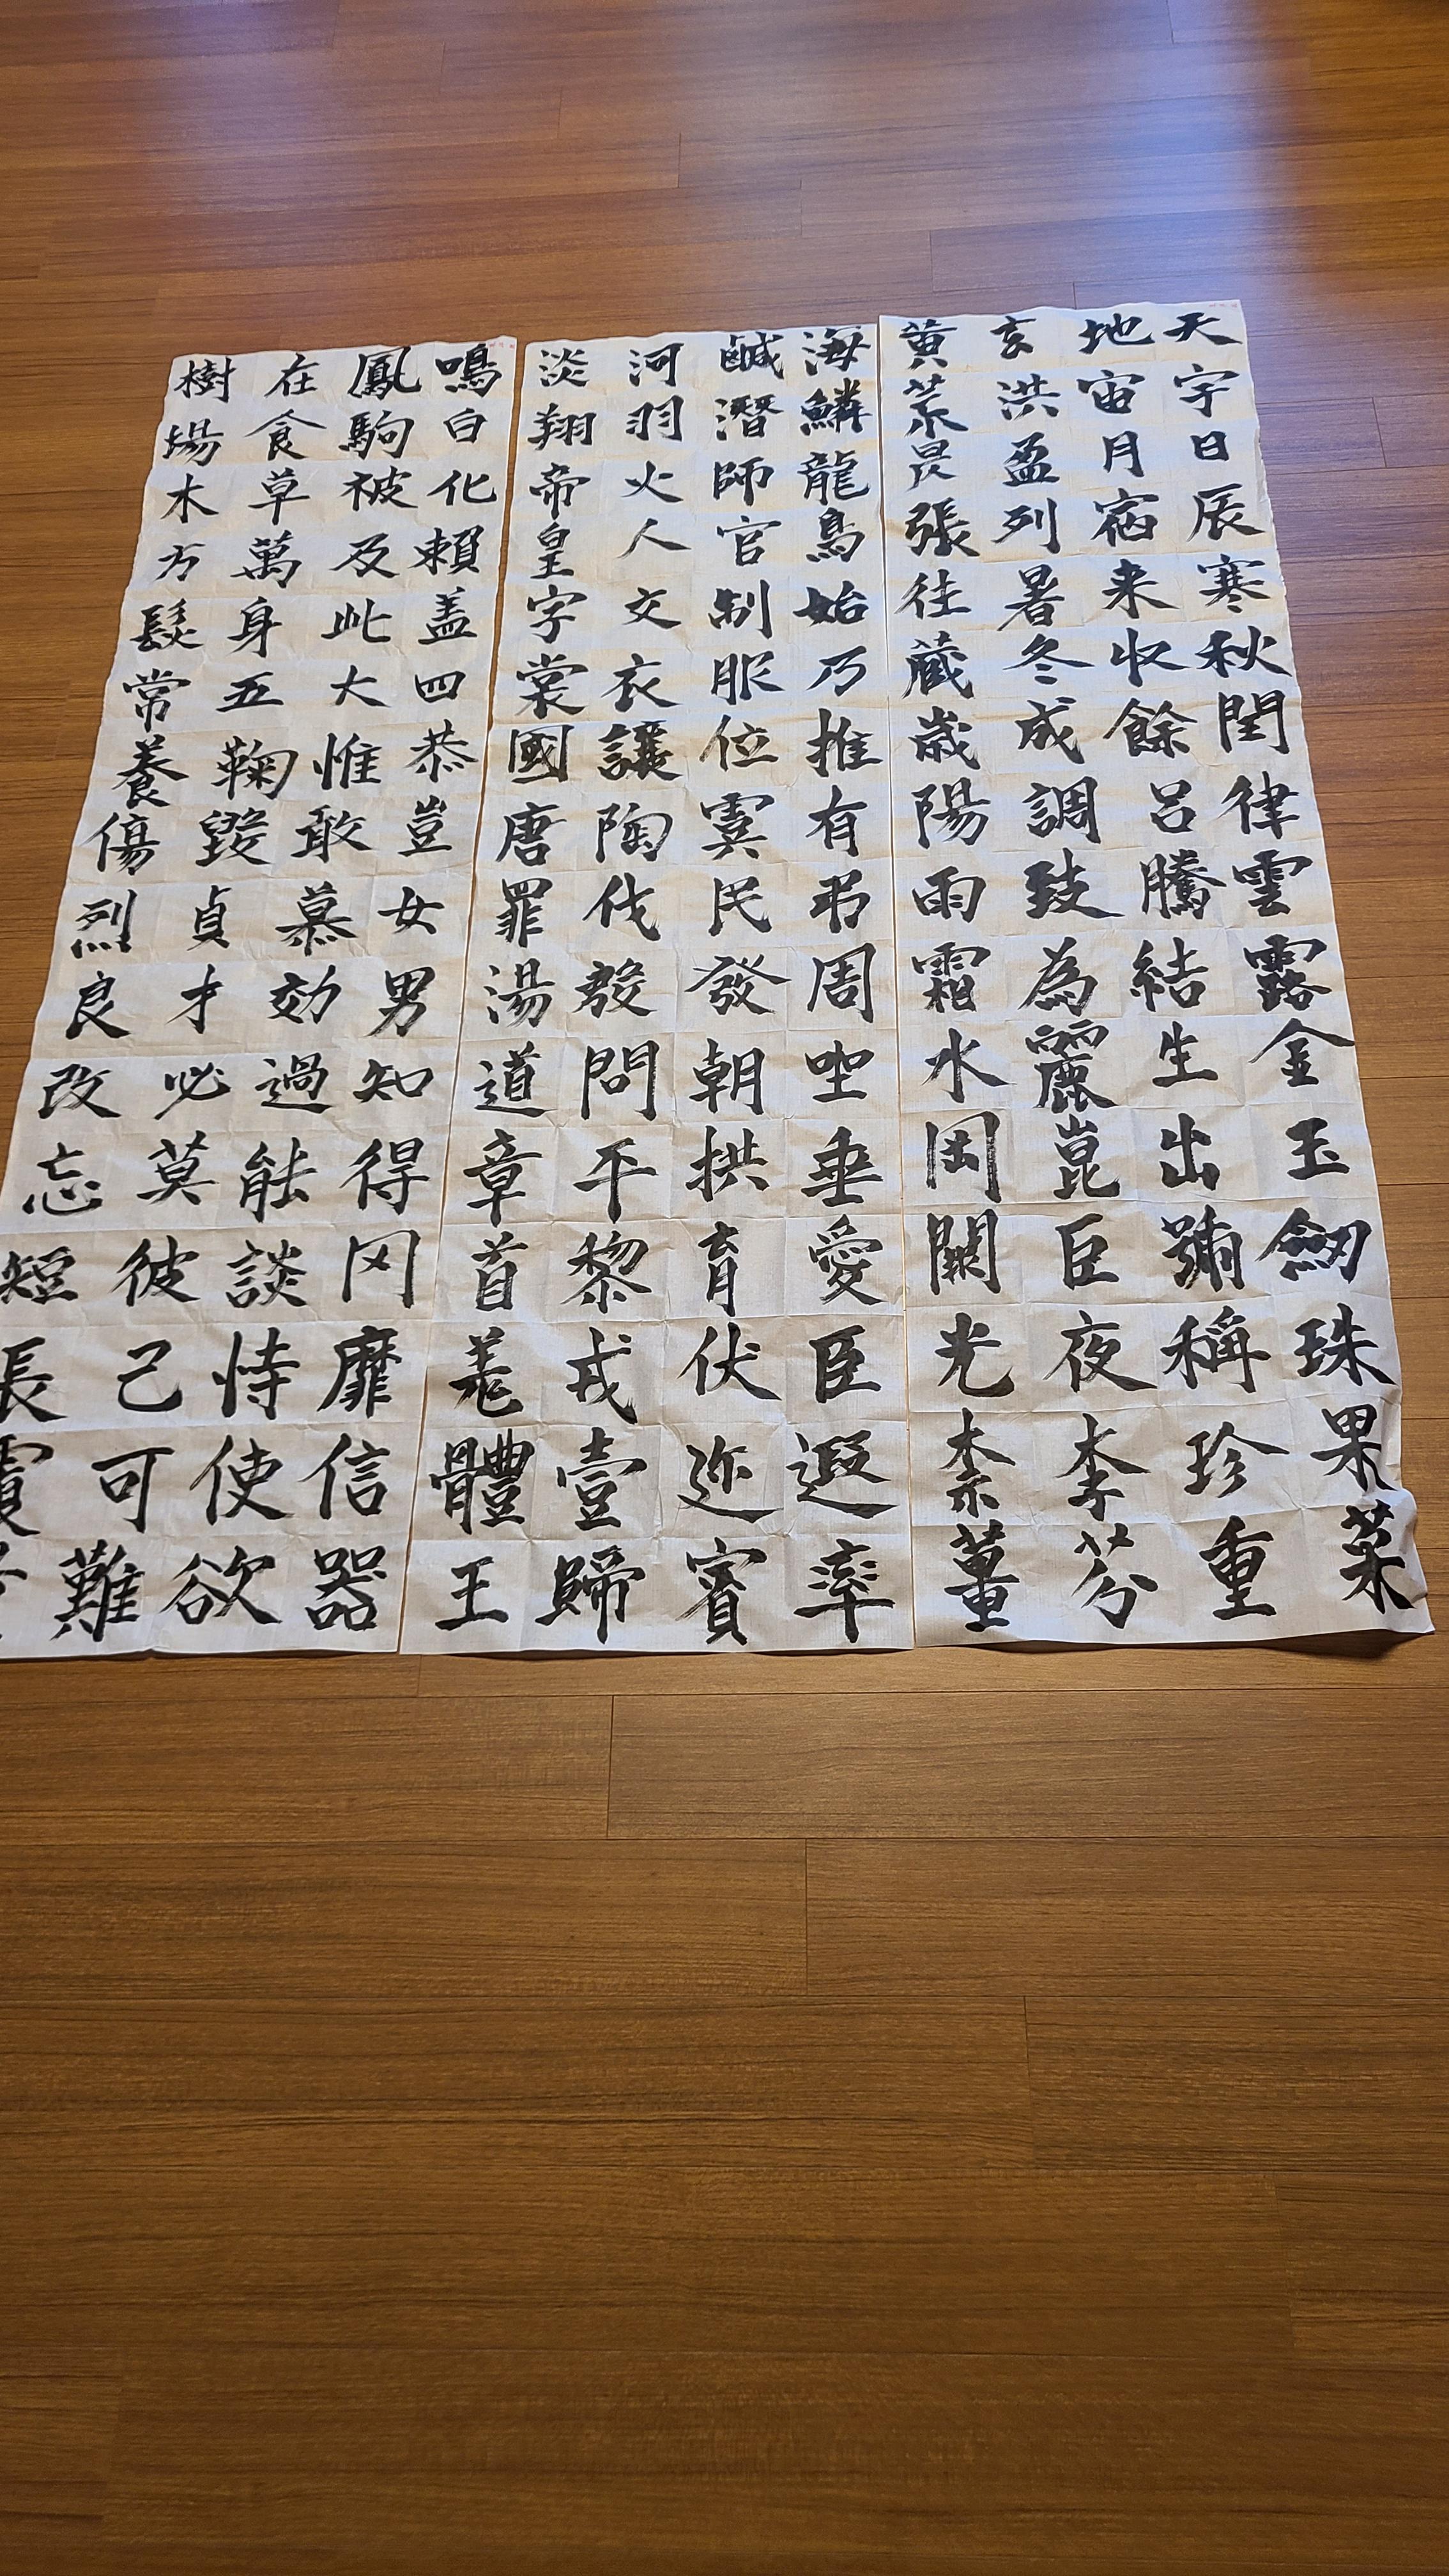 天地玄黄
宇宙洪荒
日月盈昃
辰宿列張
寒来暑往
秋収冬蔵
閏餘成歳
律呂調陽
雲騰致雨
露結為霜
金生麗水
玉出崑岡
劒號巨闕
珠稱夜光
果珍李柰
菜重芥薑
海鹹河淡
鱗潛羽翔
龍師火帝
鳥官人皇
始制文字
乃服衣裳
推位讓國
有虞陶唐
弔民伐罪
周發殷湯
坐朝問道
垂拱平章
愛育黎首
臣伏戎羌
遐迩壹體
率賓歸王
鳴鳳在樹
白駒食場
化被草木
賴及萬方
盖此身髮
四大五常
恭惟鞠養
豈敢毀傷
女慕貞烈
男効才良
知過必改
得能莫忘
罔談彼短
靡恃己長
信使可覆
器欲難